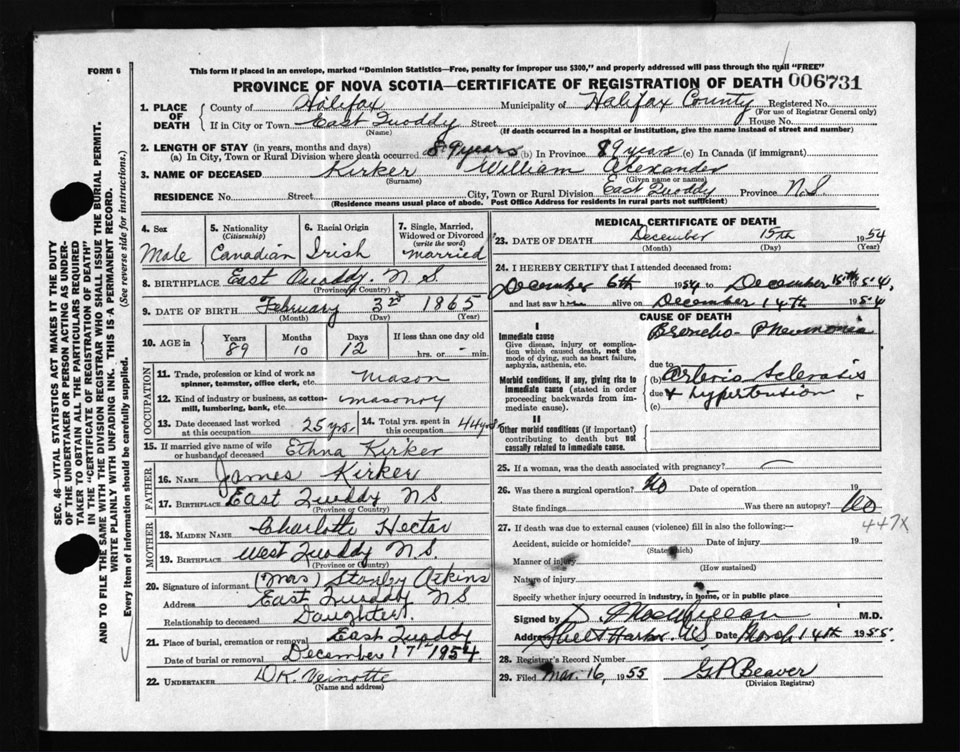 FORM 6
This form if placed in an envelope, marked "Dominion Statistics—Free, penalty for improper use $300," and properly addressed will pass through the mail "FREE"
PROVINCE OF NOVA SCOTIA—CERTIFICATE OF REGISTRATION OF DEATH 006731
1. PLACE OF DEATH County of Halifax Municipality of Halifax County Registered No.
(For use of Registrar General only)
If in City or Town East Quoddy Street House No.
(Name) (If death occurred in a hospital or institution, give the name instead of street and number)
2. LENGTH OF STAY (in years, months and days)
(a) In City, Town or Rural Division where death occurred 89 years (b) In Province 89 years (c) In Canada (if immigrant)
3. NAME OF DECEASED Kirker William Alexander
(Surname) (Given name or names)
RESIDENCE No. Street City, Town or Rural Division East Quoddy Province N.S.
(Residence means usual place of abode. Post Office Address for residents in rural parts not sufficient)
4. Sex Male
5. Nationality (Citizenship) Canadian
6. Racial Origin Irish
7. Single, Married, Widowed or Divorced (write the word) married
8. BIRTHPLACE East Quoddy. N.S.
(Province or Country)
9. DATE OF BIRTH February 3rd 1865
(Month) (Day) (Year)
10. AGE in Years Months Days If less than one day old
89 10 12 hrs. or - min.
OCCUPATION
11. Trade, profession or kind of work as spinner, teamster, office clerk, etc. Mason
12. Kind of industry or business, as cotton-mill, lumbering, bank, etc. masonry
13. Date deceased last worked at this occupation 25 yrs.
14. Total yrs. spent in this occupation 44 yrs
15. If married give name of wife or husband of deceased Ethna Kirker
FATHER
16. NAME James Kirker
17. BIRTHPLACE East Quoddy NS
(Province or Country)
MOTHER
18. MAIDEN NAME Charlotte Hector
19. BIRTHPLACE West Quoddy N.S.
(Province or Country)
20. Signature of informant (Mrs) Stanley Atkins
Address East Quoddy NS
Relationship to deceased Daughter.
21. Place of burial, cremation or removal East Quoddy
Date of burial or removal December 17th 1954
22. UNDERTAKER D.K. Veinotte
(Name and address)
MEDICAL CERTIFICATE OF DEATH
23. DATE OF DEATH December 15th 1954
(Month) (Day) (Year)
24. I HEREBY CERTIFY that I attended deceased from:
December 6th 1954 to December 15th 1954,
and last saw him alive on December 14th 1954
CAUSE OF DEATH
I
Immediate cause
Give disease, injury or complication which caused death, not the mode of dying, such as heart failure, asphyxia, asthenia, etc.
Broncho-Pneumonia
due to
Morbid conditions, if any, giving rise to immediate cause (stated in order proceeding backwards from immediate cause).
(b) Arterio Sclerosis
due & hypertension
(c)
II
Other morbid conditions (if important) contributing to death but not causally related to immediate cause.
25. If a woman, was the death associated with pregnancy?
26. Was there a surgical operation? No Date of operation 19
State findings Was there an autopsy? No
447X
27. If death was due to external causes (violence) fill in also the following:—
Accident, suicide or homicide? Date of injury 19
(State which)
Manner of injury
(How sustained)
Nature of injury
Specify whether injury occurred in industry, in home, or in public place
Signed by M.D.
Address Sheet Harbor, NS, Date March 14th 1955.
28. Registrar's Record Number
29. Filed Mar. 16, 1955 G.P. Beaver
(Division Registrar)
SEC. 46—VITAL STATISTICS ACT MAKES IT THE DUTY
OF THE UNDERTAKER OR PERSON ACTING AS UNDER-
TAKER TO OBTAIN ALL THE PARTICULARS REQUIRED
IN THE "CERTIFICATE OF REGISTRATION OF DEATH"
AND TO FILE THE SAME WITH THE DIVISION REGISTRAR WHO SHALL ISSUE THE BURIAL PERMIT.
WRITE PLAINLY WITH UNFADING INK. THIS IS A PERMANENT RECORD.
Every item of information should be carefully supplied. (See reverse side for instructions.)